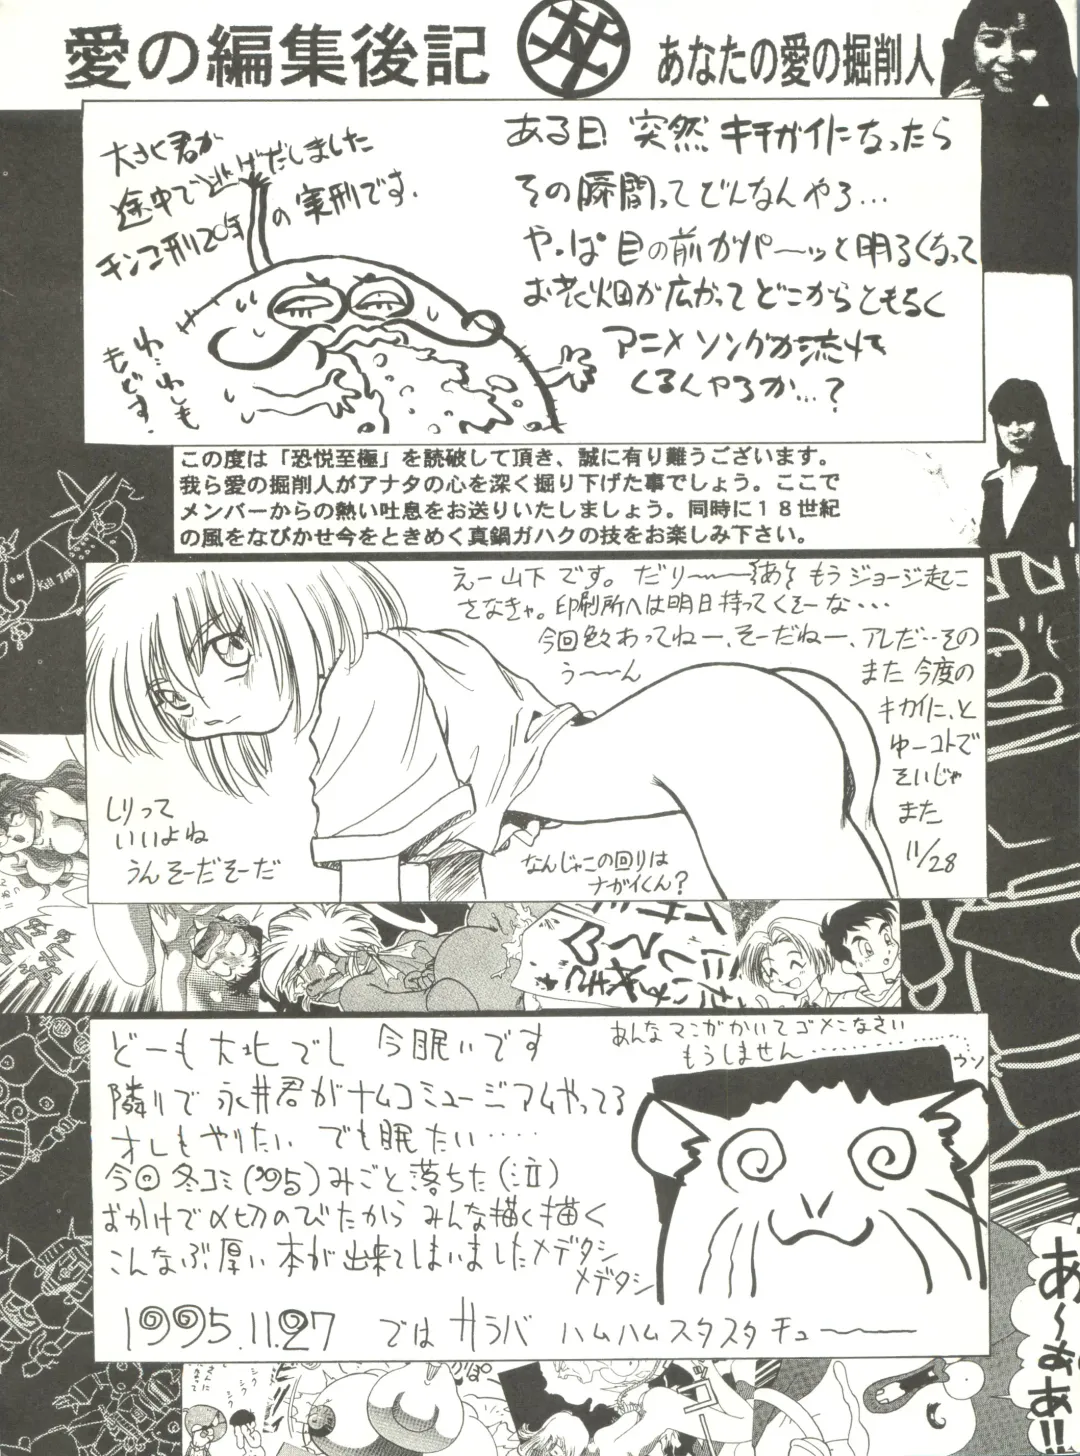 愛の編集後記
あなたの愛の掘削人
ある日 突然 キチガイになったら
その瞬間ってどんなんやろ…
やっぱ目の前がパーッと明るくなって
お花畑が広がってどこからともなく
アニメソングが流れて
くるんやろか…?
大さく君が
途中で逃げだしました
チンコ刑20年の実刑です.
わ…われも
もどす.
この度は「恐悦至極」を読破して頂き、誠に有り難うございます。
我ら愛の掘削人がアナタの心を深く掘り下げた事でしょう。ここで
メンバーからの熱い吐息をお送りいたしましょう。同時に18世紀
の風をなびかせ今をときめく真鍋ガハクの技をお楽しみ下さい。
えー山下です。だりー もうジョージ起こ
さなきゃ。印刷所へは明日持ってくそーな・・・
今回終わってねー、そーだねー、アレだ…その
うーーん
また今度の
キカイに、と
ゆーコトで
そいじゃ
また
11/28
しりって
いいよね
うんそーだそーだ
なんじゃこの回りは
ナガイくん?
どーも大北でし 今眠いです
隣りで永井君がナムコミュージアムやってる
オレもやりたい でも眠たい・・・・
今回冬コミ('95)みごと落ちた(泣)
おかげで〆切のびたから みんな描く描く
こんなぶ厚い本が出来てしまいましたメデタシ
メデタシ
1995.11.27 ではサラバ ハムハムスタスタチューーー
あんなマンガかいてゴメンなさい
もうしません・・・・・・・・・
ウソ
あ～ああ!!